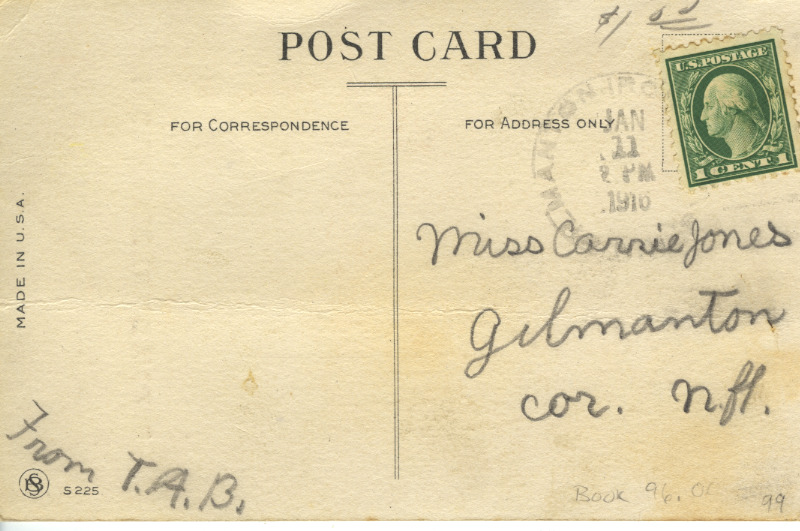 $1.00
POST CARD
FOR CORRESPONDENCE
FOR ADDRESS ONLY
U.S. POSTAGE
1 CENT 1
JAN
11
PM
1916
MADE IN U.S.A.
Miss Carrie Jones
Gilmanton
cor. N.H.
From T.A.B.
S 225
Book 96.
99